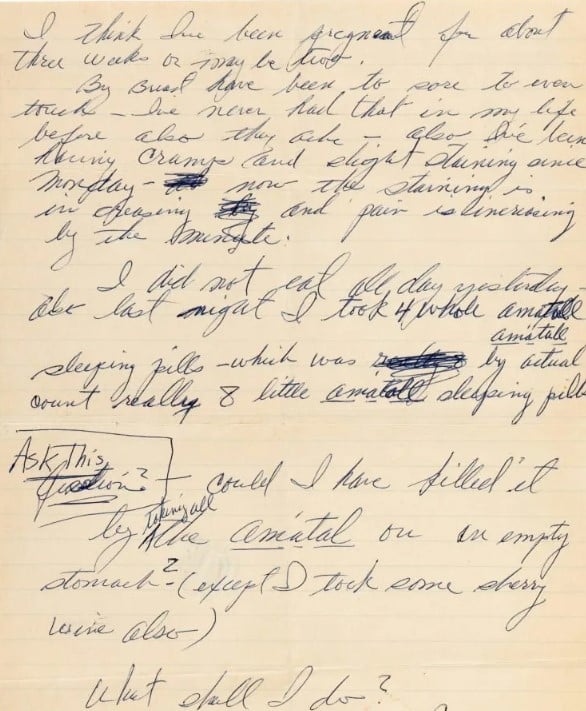 I think I've been pregnant for about
three weeks or may be two.
My Breast have been to sore to even
touch – I've never had that in my life
before also they ache – also I've been
having cramps and slight staining since
Monday – now the staining is
increasing and pain is increasing
by the minute.
I did not eat all day yesterday –
also last night I took 4 whole amatall
amatall
sleeping pills – which was by actual
count really 8 little amatall sleeping pills
Ask This
question? – could I have killed it
by taking all
the amatal on an empty
stomach? (except I took some sherry
wine also)
What shall I do?